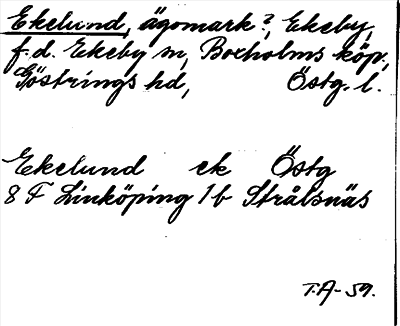 Ekelund, ägomark?, Ekeby,
f.d. Ekeby sn, Boxholms köp.,
Göstrings hd, Östg. l.
Ekelund ek Östg
8 F Linköping 1b Strålsnäs
T.A-59.